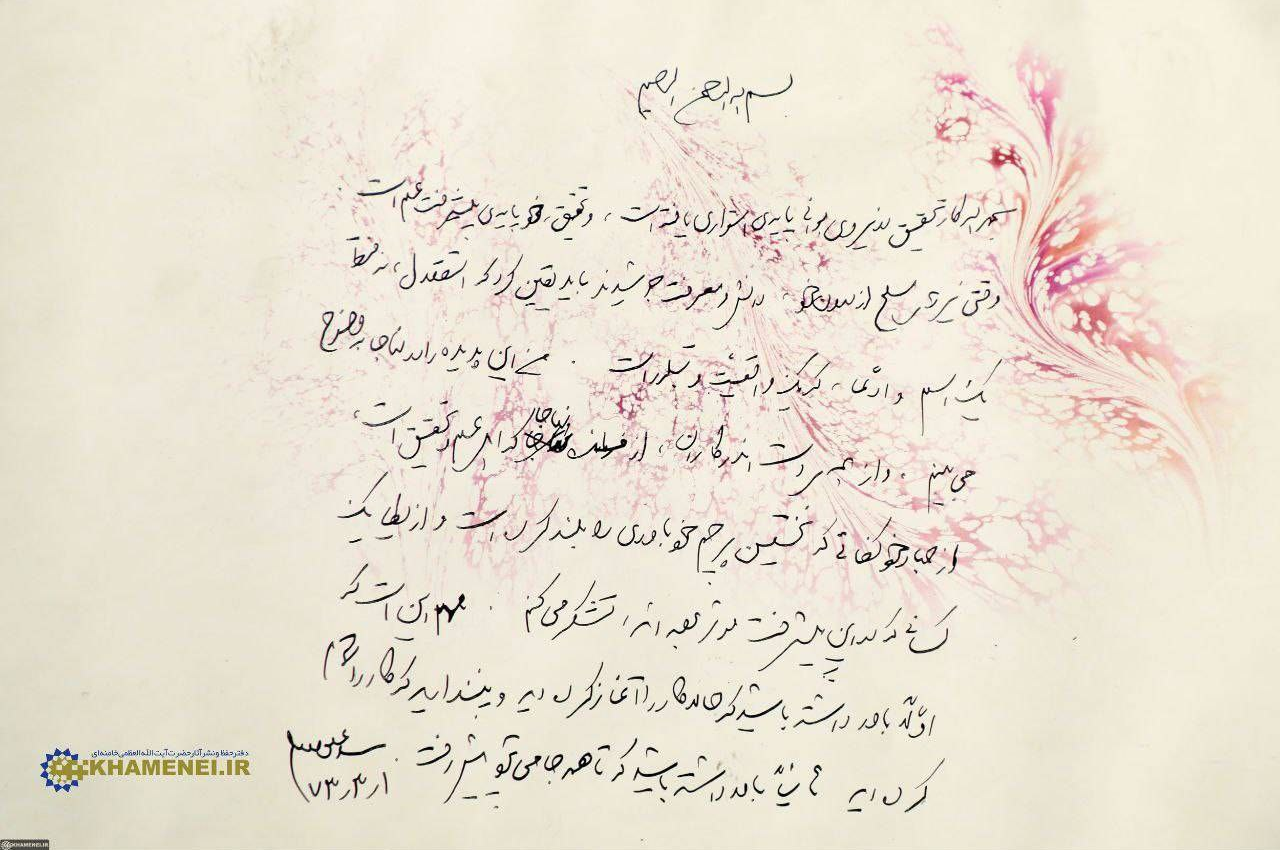 بسم الله الرحمن الرحیم
بحمدالله کار تحقیق در نیروی هوائی پایه‌ی استواری یافته است، و تحقیق، خود پایه‌ی پیشرفت علم است.
وقتی نیروهای مسلح از درون خود، دانش و معرفت جوشیدند باید یقین کرد که استقلال، نه فقط
یک اسم و ادّعا، که یک واقعیّت و تبلور است. من این پدیده را در اینجا به وضوح
می‌بینم، و از همه‌ی دست اندرکاران، از فرمانده نهاجا که اهل علم و تحقیق است،
از جهاد خودکفائی که نخستین پرچم خودباوری را بلند کرده است و از یکایک
کسانی که در این پیشرفت مؤثر بوده‌اند، تشکر می‌کنم. مهم این است که
اوّلاً باور داشته باشید که حالا کار را آغاز کرده‌اید و نپندارید که کار را تمام
کرده‌اید ثانیاً باور داشته باشید که تا همه جا می‌توان پیش رفت.
سید علی خامنه‌ای
۷۳/۳/۱
دفتر حفظ و نشر آثار حضرت آیت‌الله العظمی خامنه‌ای
KHAMENEI.IR
KHAMENEI.IR